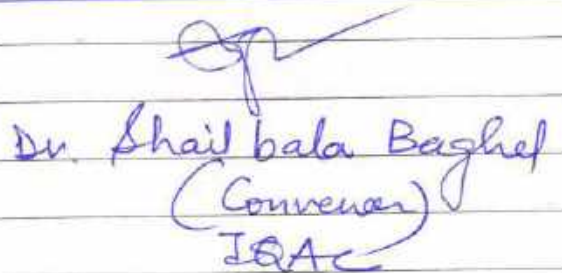 Dr. Shail bala Baghel
(Convener)
IQAC